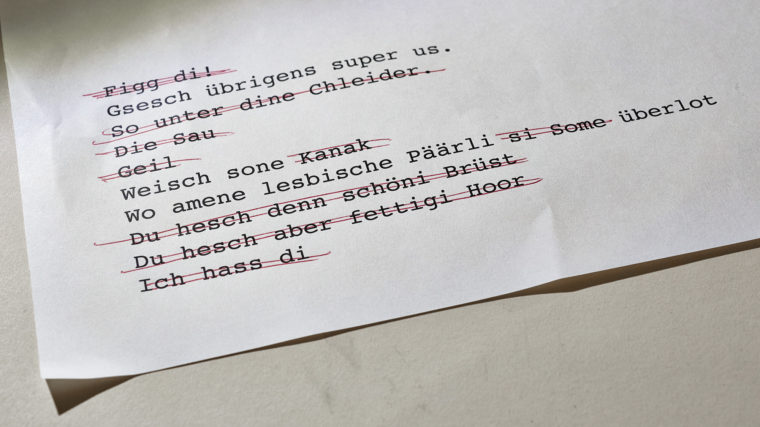 Figg di!
Gsesch übrigens super us.
So unter dine Chleider.
Die Sau
Geil
Weisch sone Kanak
Wo amene lesbische Päärli si Some überlot
Du hesch denn schöni Brüst
Du hesch aber fettigi Hoor
Ich hass di